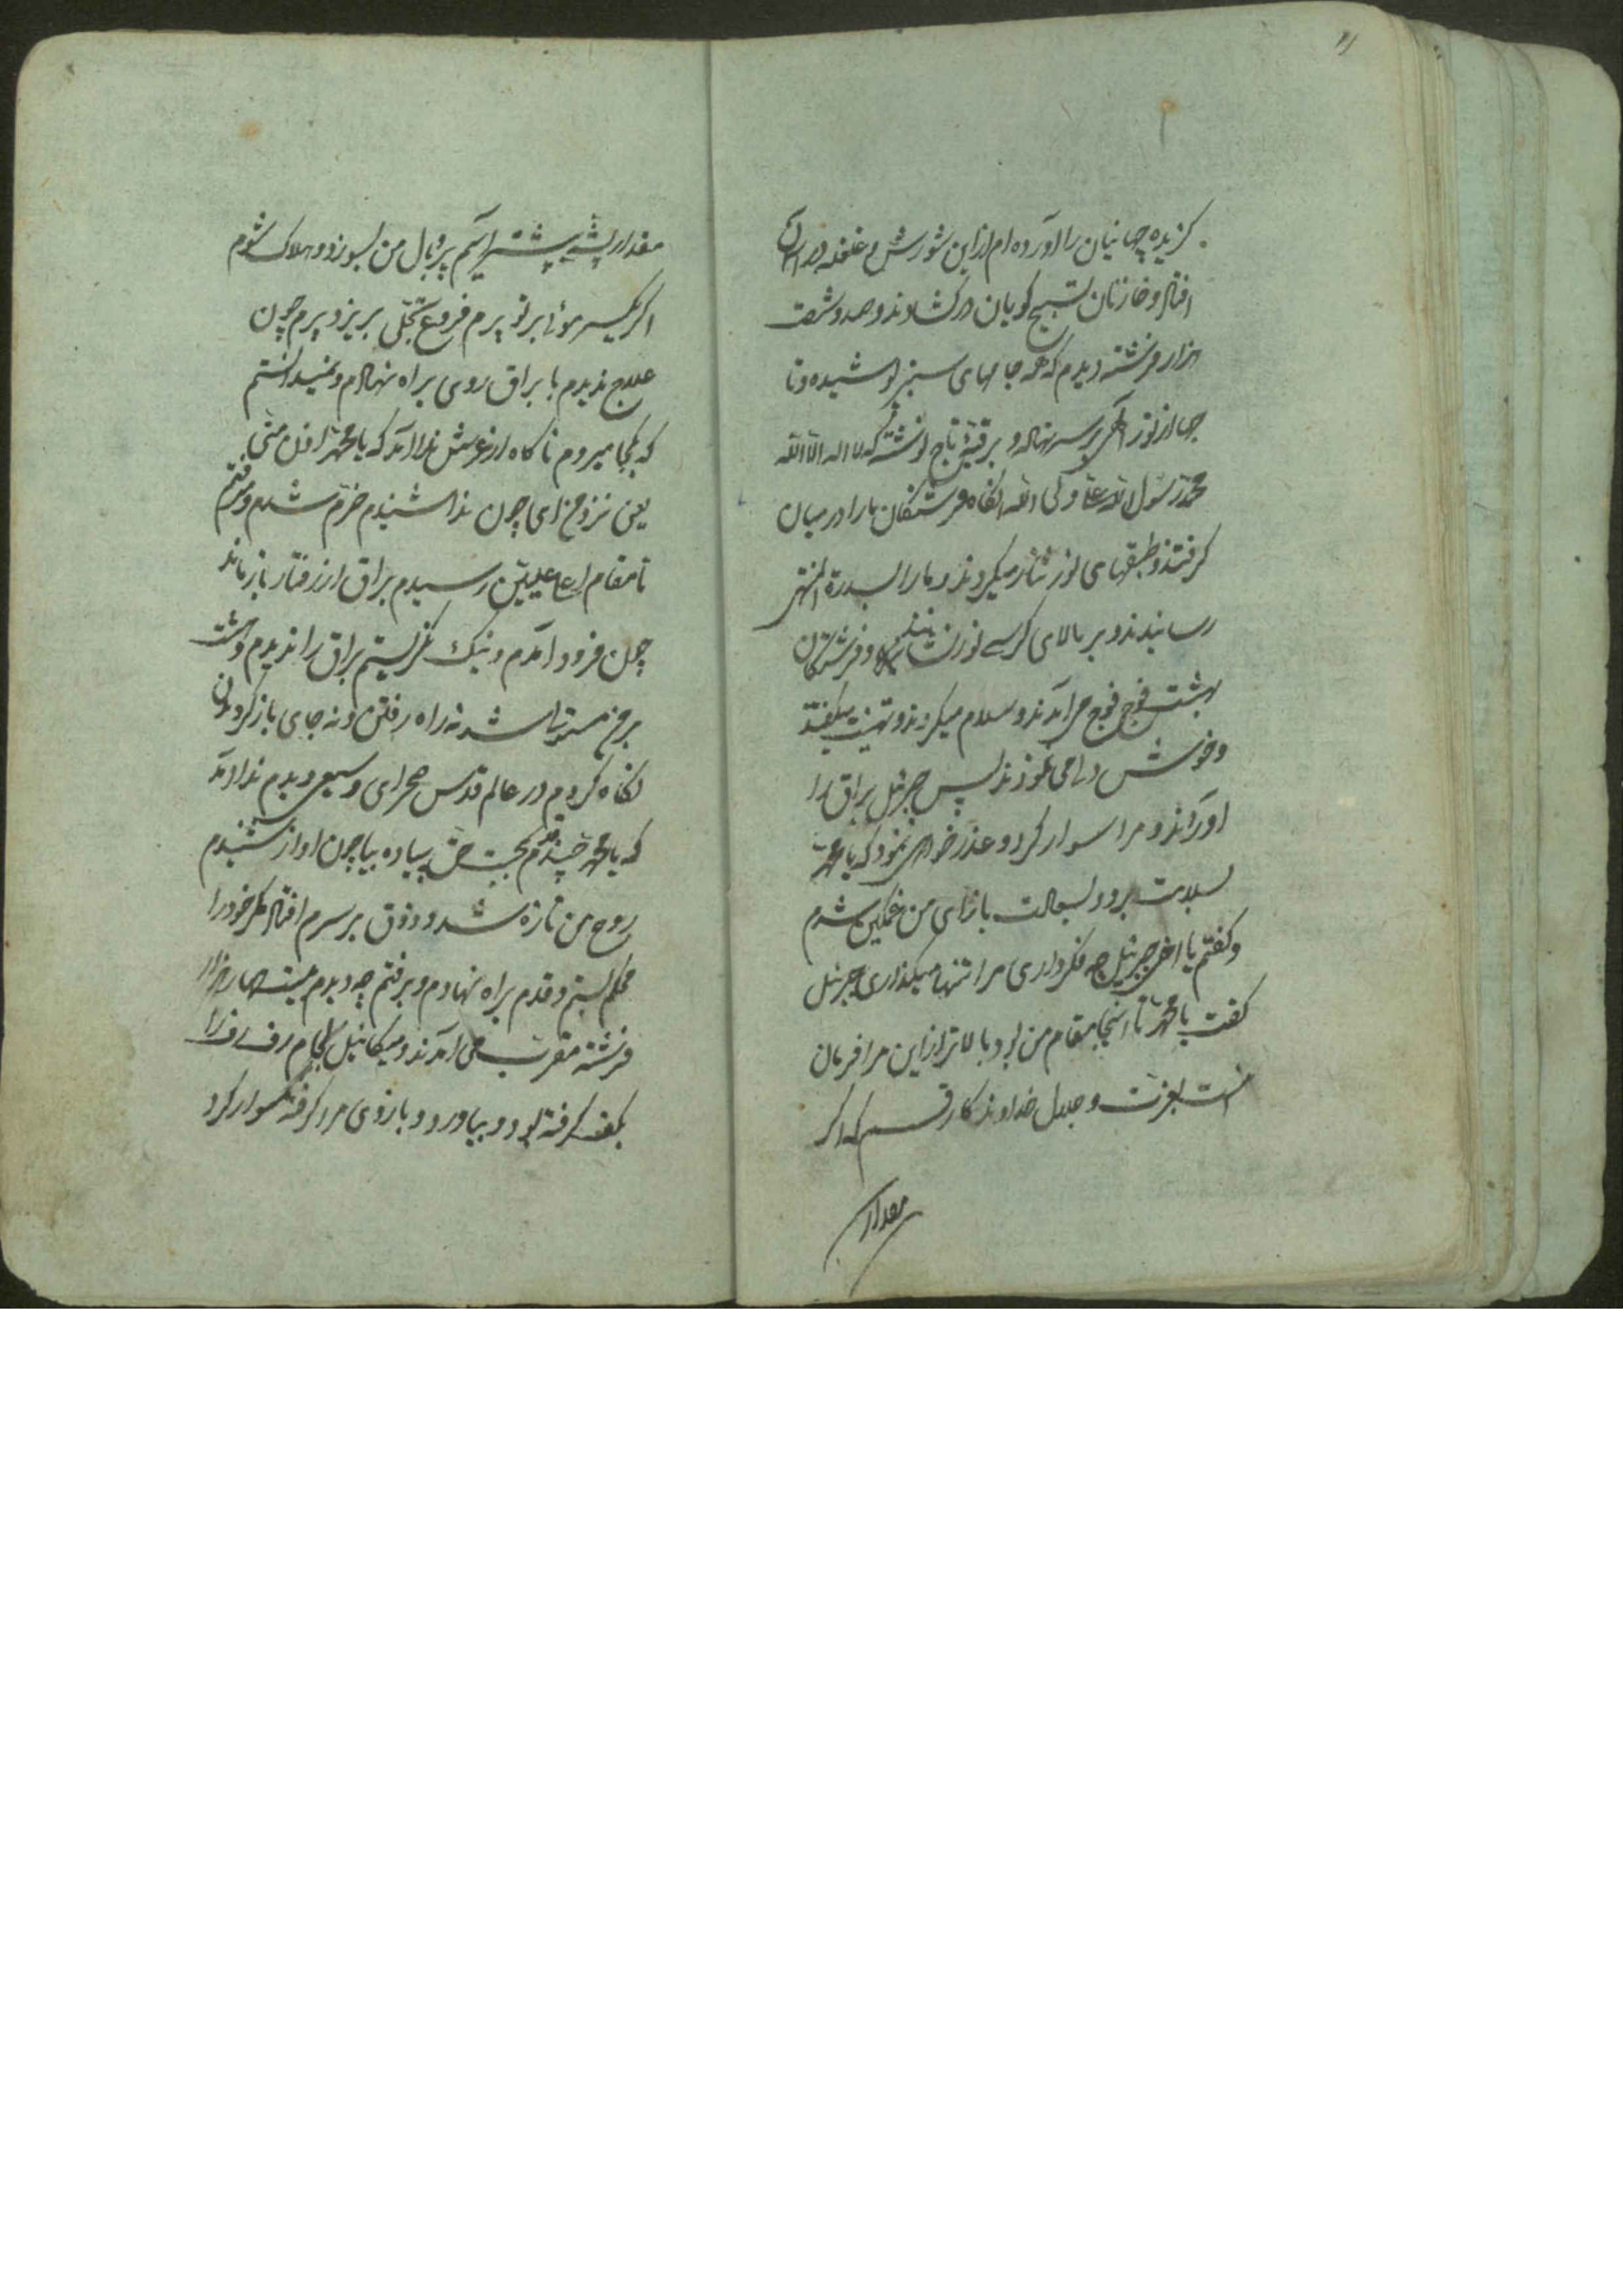 گزیده جهانیان را آورده ام از این شورش و غلغله در آسمان
افتاد و خازنان تسبیح گویان در گشادند و صد و شصت
هزار فرشته دیدم که همه جامهای سبز پوشیده و تا
جی از نور الهی بر سر نهاده و بر قبهٔ تاج نوشته که لا اله الا الله
محمد رسول الله علی ولی الله انکاه فرشتکان ما را در میان
کرفتند و طبقهای نور نثار میکردند و ما را بسدرة المنتهی
رسانیدند و بر بالای کرسی نور و فرشتکان
بهشت فوج فوج می آمدند و سلام میکردند و تهنیت میکفتند
و خوش می نمودند پس جبرئیل براق را
آوردند و مرا سوار کرد و عذر خواهی نمود که یا محمد
بسلامت برو و بسعادت باز آی من غمکین شدم
و کفتم یا اخی جبرئیل چه فکر داری مرا تنها میکذاری جبرئیل
کفت یا محمد تا اینجا مقام من بود بالاتر از این مرا فرمان
نیست بعزت و جلال خداوندکار قسم که اکر
مقدار
مقدار پشهٔ پیشتر آیم پر و بال من بسوزد و هلاک شوم
اکر یکسر موئی برتر پرم فروغ تجلی بریزد پرم چون
علاج ندیدم با براق روی براه نهادم و نمیدانستم
که بکجا میروم ناکاه از عرش ندا آمد که یا محمد ادن منی
یعنی نزدیک آی چون ندا شنیدم خرم شدم و میرفتم
تا مقام اعلا علیین رسیدم براق از رفتار باز ماند
چون فرود آمدم و نیک نکریستم براق را ندیدم وحشت
بر من مستولی شد نه راه رفتن و نه جای باز کردیدن
نکاه کردم در عالم قدس صحرای وسیعی دیدم ندا آمد
که یا محمد قدم بجنب حق پیاده بیا چون آواز شنیدم
روح من تازه شد و ذوق بر سرم افتاد کمر خود را
محکم بستم و قدم براه نهادم و برفتم چه دیدم بیست چهار هزار
فرشته مقرب می آمدند و میکائیل لجام رفرف را
بکف کرفته بود و بیاورد و بازوی مرا کرفته سوار کرد